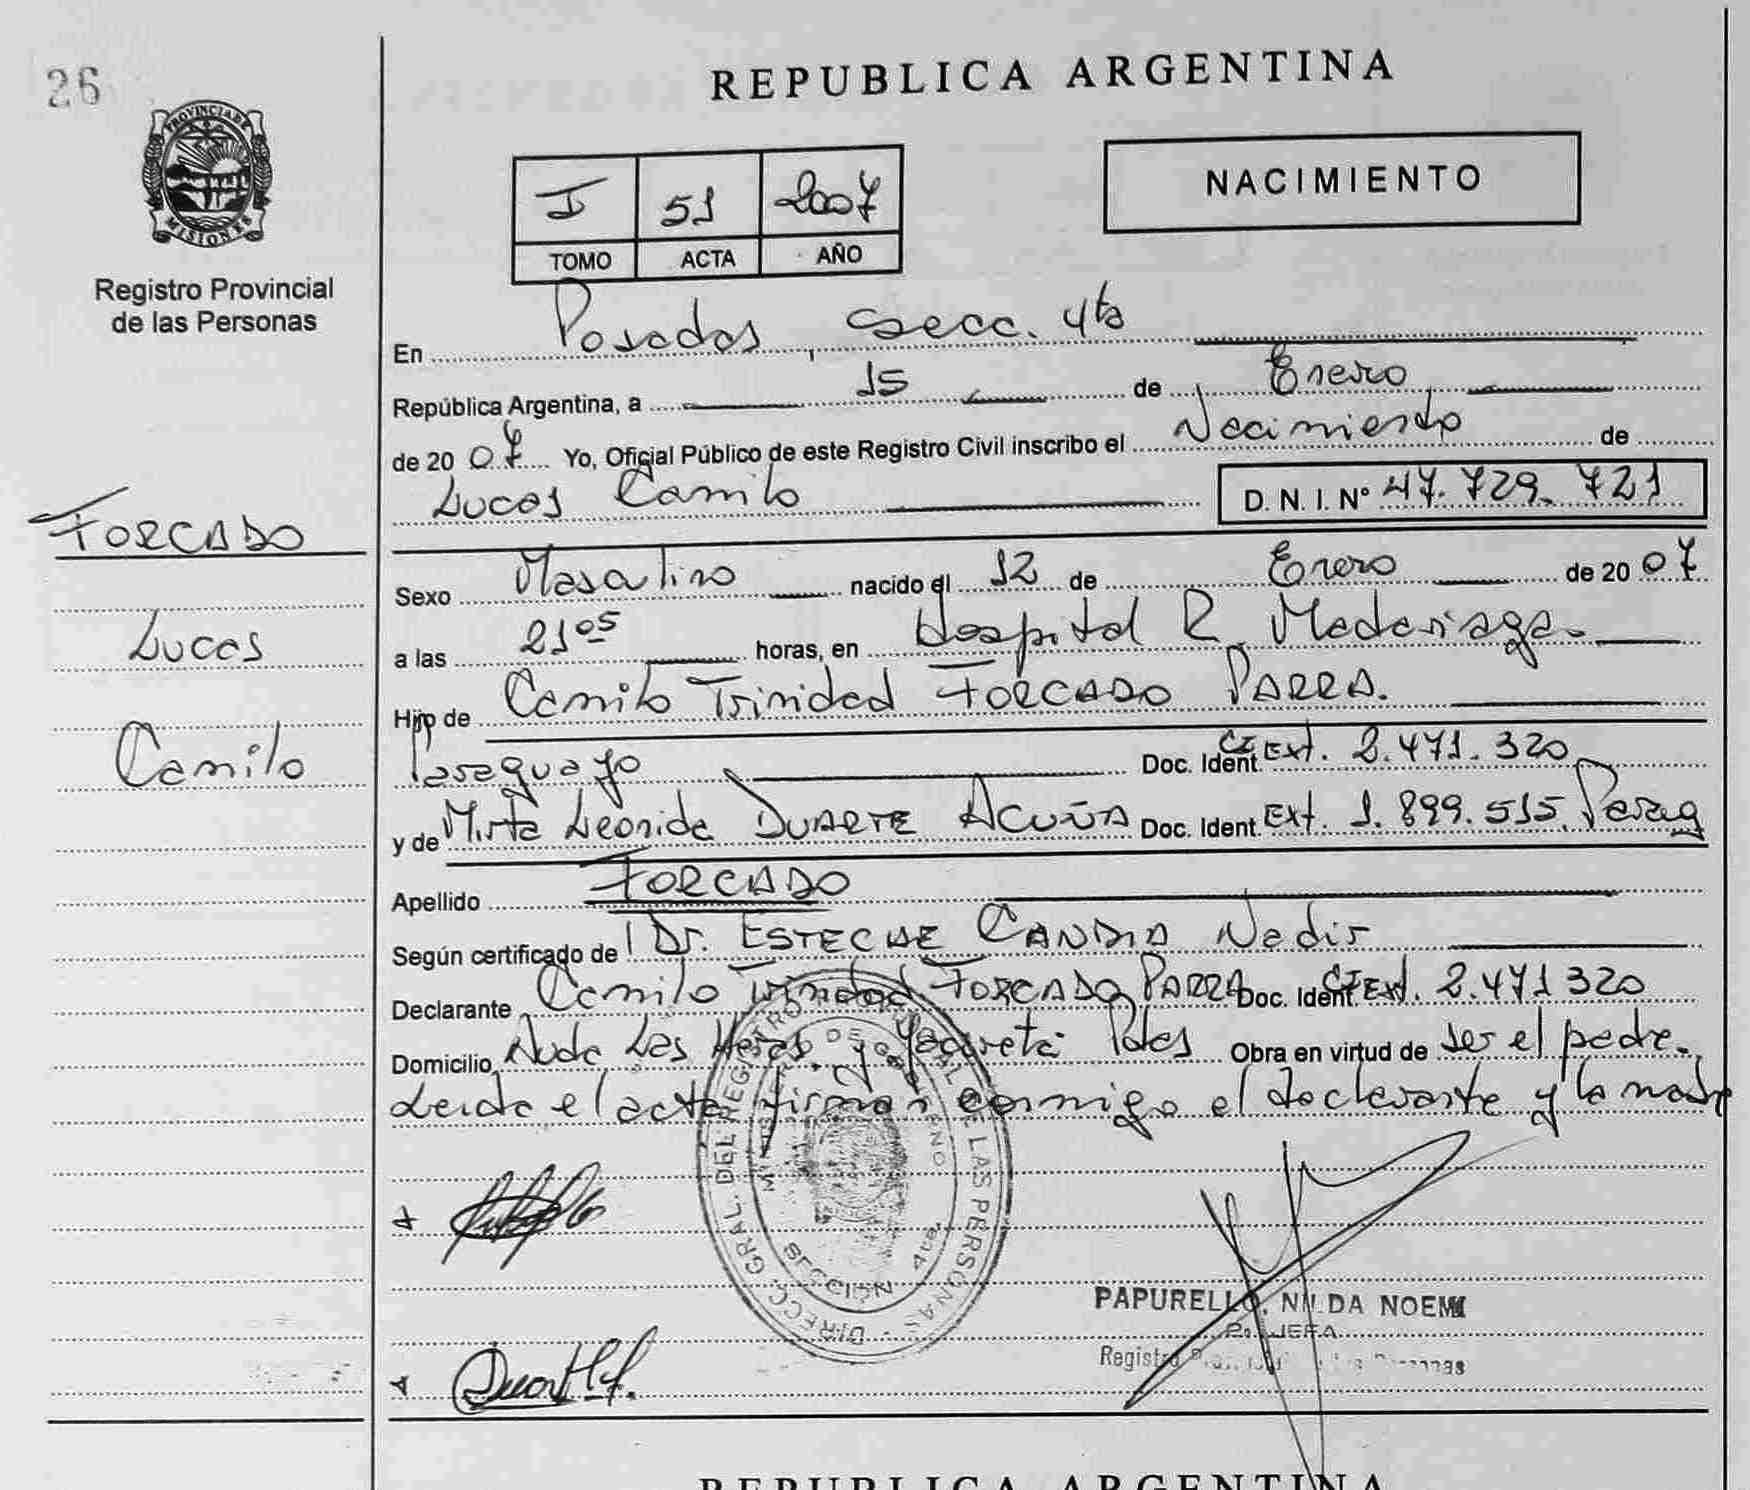 26
REPUBLICA ARGENTINA
PROVINCIA DE
MISIONES
Registro Provincial
de las Personas
NACIMIENTO
I 51 2007
TOMO ACTA AÑO
En Posadas, secc. 4ta
República Argentina, a 15 de Enero
de 2007 Yo, Oficial Público de este Registro Civil inscribo el Nacimiento de
Lucas Camilo D. N. I. Nº 47.729.721
FORCADO
Lucas
Camilo
Sexo Masculino nacido el 12 de Enero de 2007
a las 21 05 horas, en Hospital R. Madariaga.
Hijo de Camilo Trinidad FORCADO PARRA.
Paraguayo Doc. Ident. CI Ext. 2.471.320
y de Mirta Leonida DUARTE ACUÑA Doc. Ident. Ext. 1.899.515. Parag
Apellido FORCADO
Según certificado de Dr. ESTECHE CANDIA Nadir
Declarante Camilo Trinidad FORCADO PARRA Doc. Ident. CI Ext. 2.471320
Domicilio Avda Las Heras y Yacyretá Pdas Obra en virtud de ser el padre.
Leida el acta firman conmigo el declarante y la madre
DIRECC. GRAL. DEL REGISTRO DE LAS PERSONAS
SECCIÓN 4ta
PAPURELLO, NILDA NOEMI
JEFA
Registro
REPUBLICA ARGENTINA